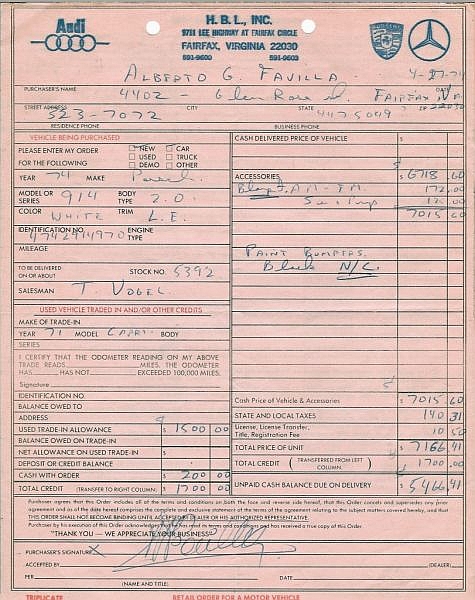 Audi
H. B. L., INC.
9711 LEE HIGHWAY AT FAIRFAX CIRCLE
FAIRFAX, VIRGINIA 22030
591-9600 591-9603
ALBERTO G. FAVILLA 4-27-74
PURCHASER'S NAME DATE
4402 - Glen Rose St. FAIRFAX, Va
STREET ADDRESS CITY STATE ZIP
323-7072 447-5049
RESIDENCE PHONE BUSINESS PHONE
VEHICLE BEING PURCHASED
PLEASE ENTER MY ORDER
FOR THE FOLLOWING
NEW CAR
USED TRUCK
DEMO OTHER
YEAR 74 MAKE Porsch
MODEL OR SERIES 914 BODY TYPE 2.0
COLOR WHITE TRIM L.E.
IDENTIFICATION NO. 4742914970 ENGINE TYPE
MILEAGE
TO BE DELIVERED ON OR ABOUT STOCK NO. 5392
SALESMAN T. VOGEL
USED VEHICLE TRADED IN AND/OR OTHER CREDITS
MAKE OF TRADE-IN
YEAR 71 MODEL CAPRI BODY
SERIES
I CERTIFY THAT THE ODOMETER READING ON MY ABOVE
TRADE READS MILES. THE ODOMETER
HAS HAS NOT EXCEEDED 100,000 MILES.
Signature
IDENTIFICATION NO.
BALANCE OWED TO
ADDRESS
USED TRADE-IN ALLOWANCE $ 1500 00
BALANCE OWED ON TRADE-IN
NET ALLOWANCE ON USED TRADE-IN
DEPOSIT OR CREDIT BALANCE
CASH WITH ORDER 200 00
TOTAL CREDIT (TRANSFER TO RIGHT COLUMN) $ 1700 00
CASH DELIVERED PRICE OF VEHICLE $
ACCESSORIES 6718 60
A.M-F.M 172.00
7015 60
PAINT BUMPERS
Black N/C
Cash Price of Vehicle & Accessories $ 7015 60
STATE AND LOCAL TAXES 140 31
License, License Transfer,
Title, Registration Fee 10 50
TOTAL PRICE OF UNIT $ 7166.41
TOTAL CREDIT (TRANSFERRED FROM LEFT COLUMN) 1700.00
UNPAID CASH BALANCE DUE ON DELIVERY $ 5466.41
Purchaser agrees that this Order includes all of the terms and conditions on both the face and reverse side hereof, that this Order cancels and supersedes any prior
agreement and as of the date hereof comprises the complete and exclusive statement of the terms of the agreement relating to the subject matters covered hereby, and that
THIS ORDER SHALL NOT BECOME BINDING UNTIL ACCEPTED BY DEALER OR HIS AUTHORIZED REPRESENTATIVE.
Purchaser by his execution of this Order acknowledges that he has read its terms and conditions and has received a true copy of this Order.
"THANK YOU — WE APPRECIATE YOUR BUSINESS"
PURCHASER'S SIGNATURE X
ACCEPTED BY (DEALER)
PER DATE
(NAME AND TITLE)
TRIPLICATE RETAIL ORDER FOR A MOTOR VEHICLE